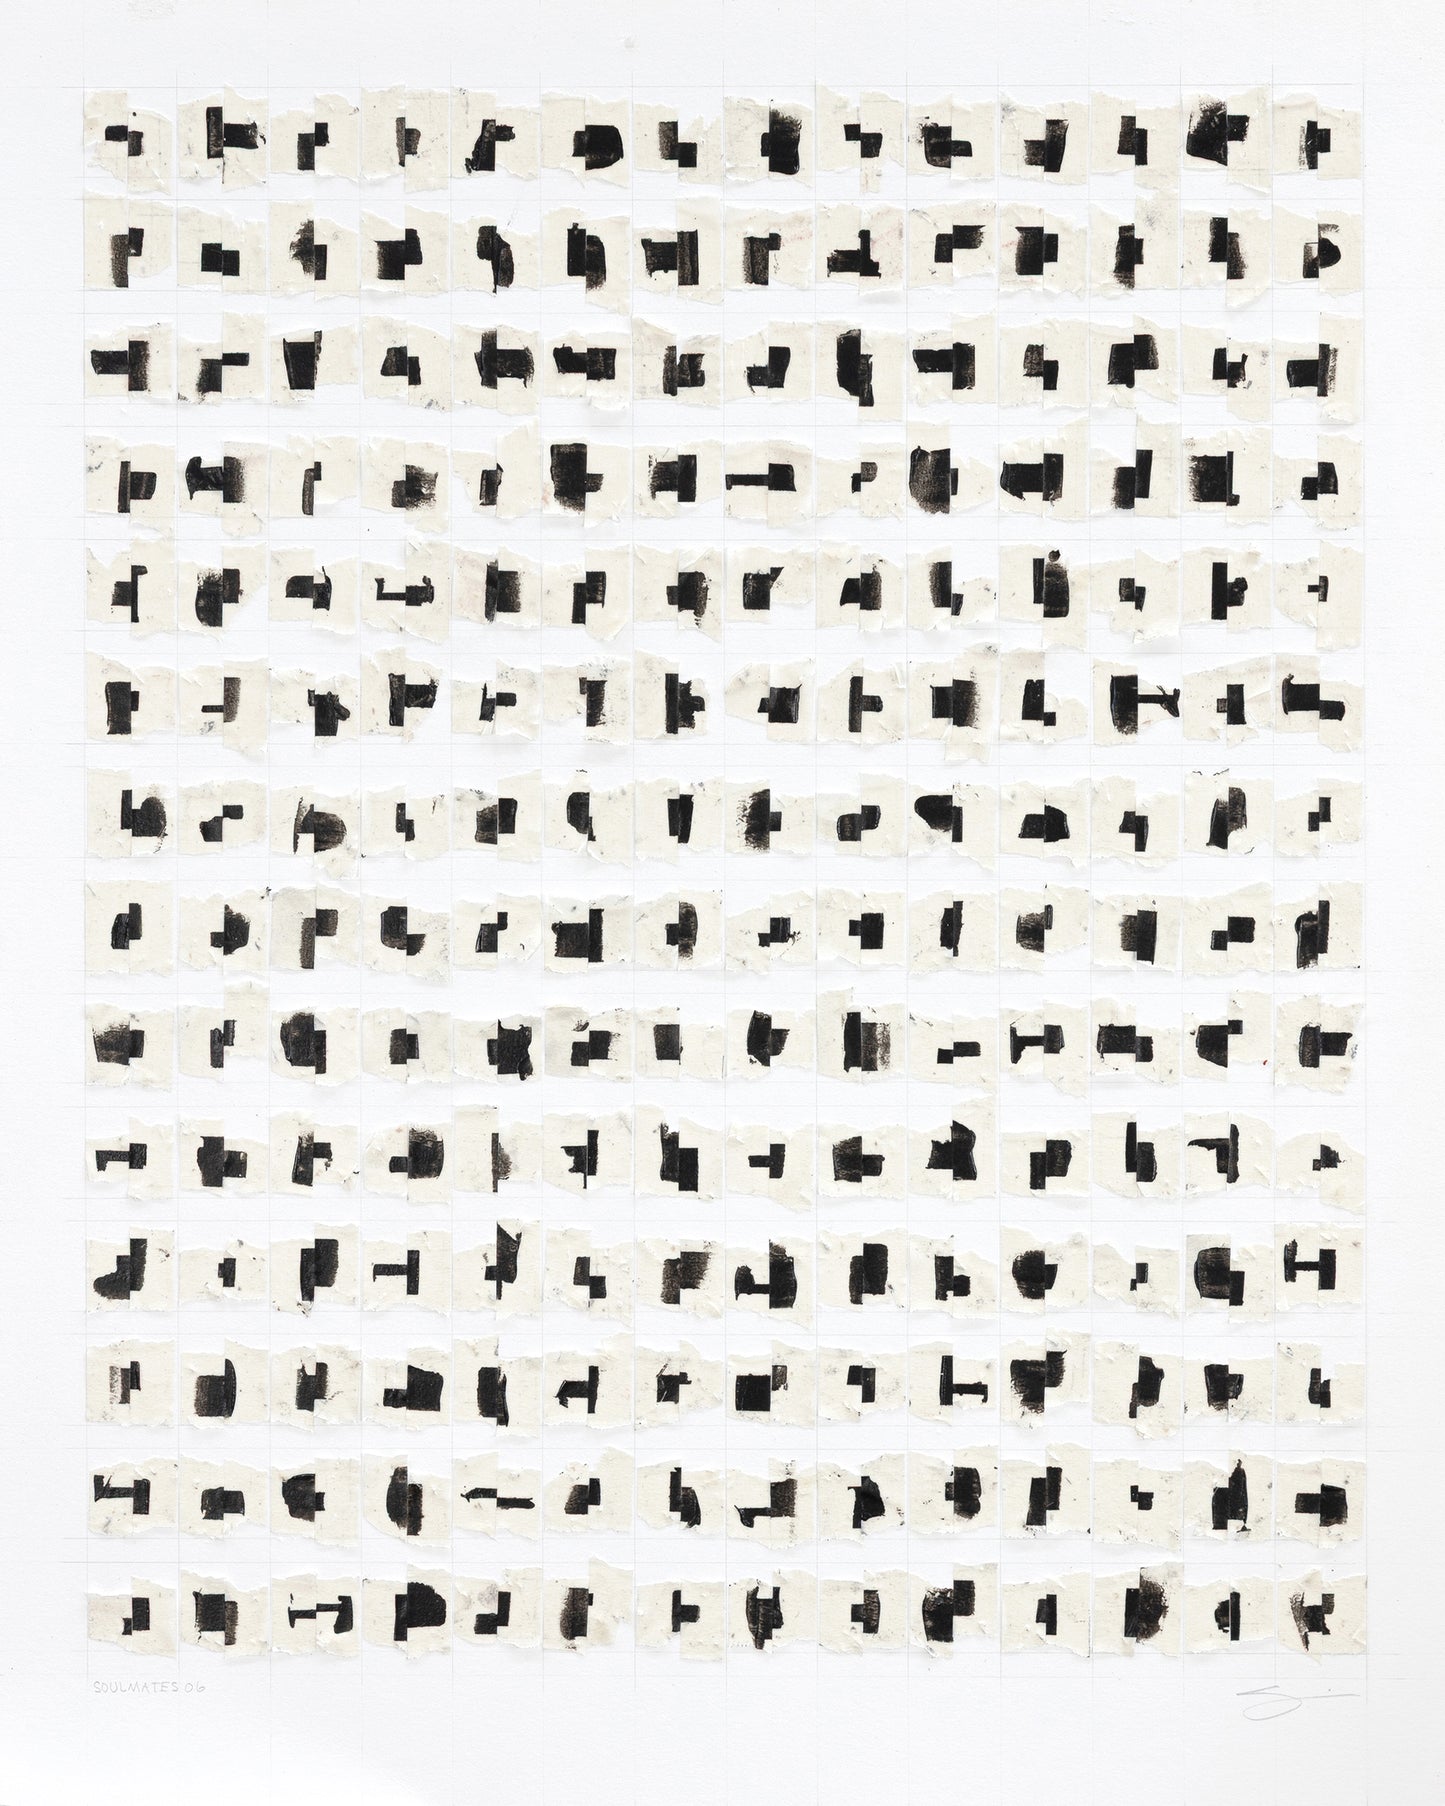 SOULMATES 06